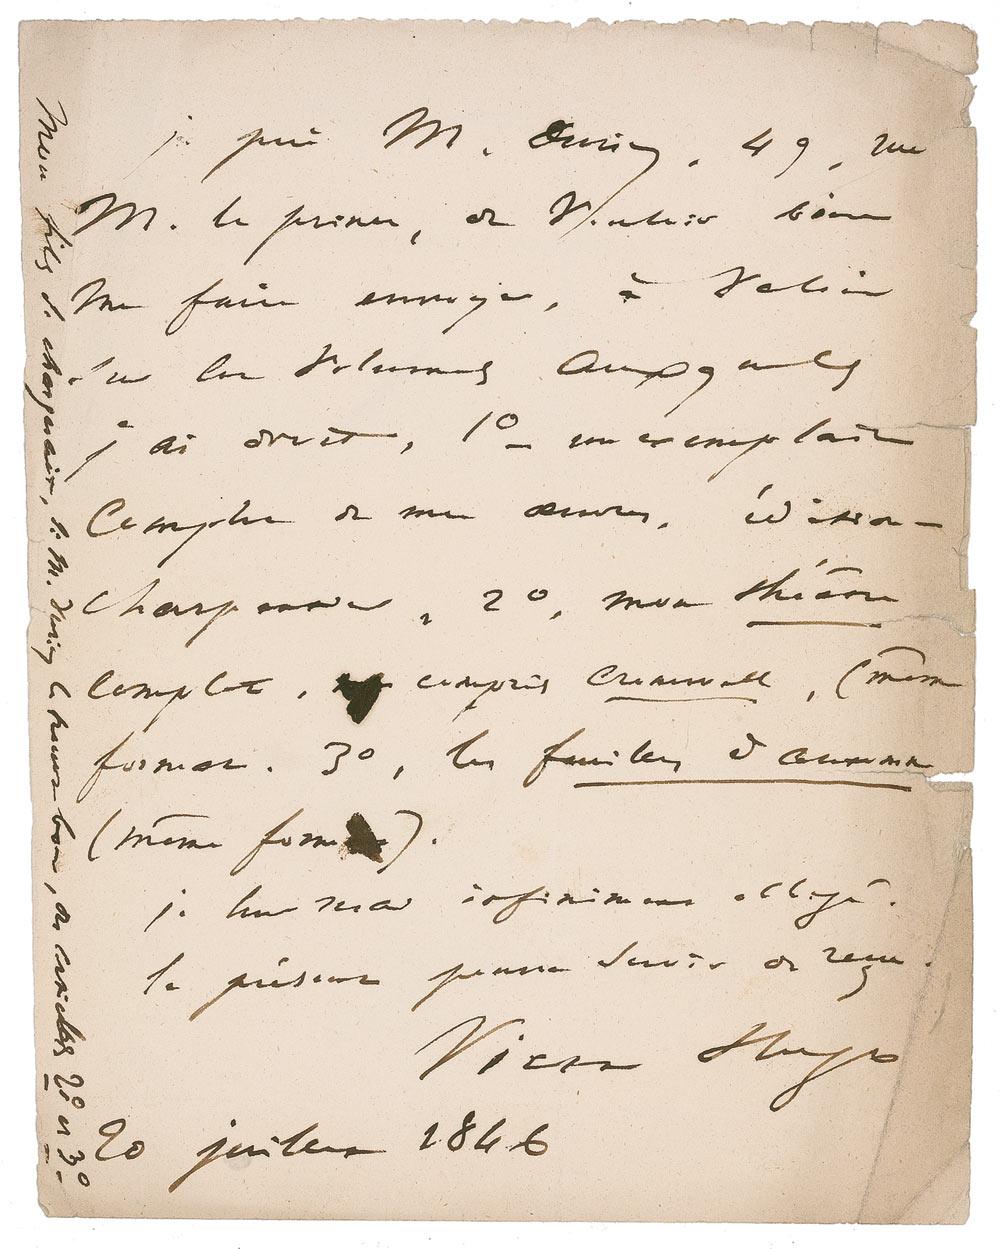 je prie M. Duriez, 49, rue
M. le prince, de vouloir bien
me faire envoyer, à valoir
sur les volumes auxquels
j'ai droit, 1º un exemplaire
complet de mes œuvres, édition
Charpentier, 2º, mon théâtre
complet, compris Cromwell, (même
format. 3º, les feuilles d'automne
(même format).
je lui serai infiniment obligé.
le présent pourra servir de reçu.
Victor Hugo
20 juillet 1846
Mon fils de chargerait, si M. Duriez le trouve bon, des articles 2º et 3º